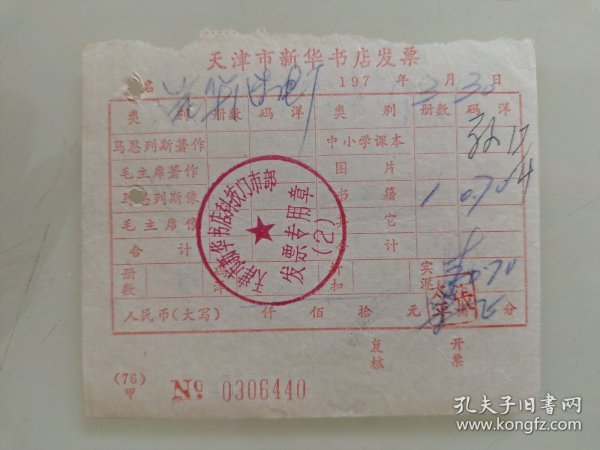 天津市新华书店发票
名 197 年 3 月 30 日
类 别 册数 码 洋 类 别 册数 码 洋
马恩列斯著作 中小学课本
毛主席著作 图 片
马恩列斯像 书 籍 1 0.70
毛主席像 其 它
合 计 合 计
册数 码洋 折扣 实洋 0.70
人民币(大写) 仟 佰 拾 元 分
复核 开票
(76)甲 № 0306440
天津市新华书店科技门市部
发票专用章
(2)
孔夫子旧书网
www.kongfz.com